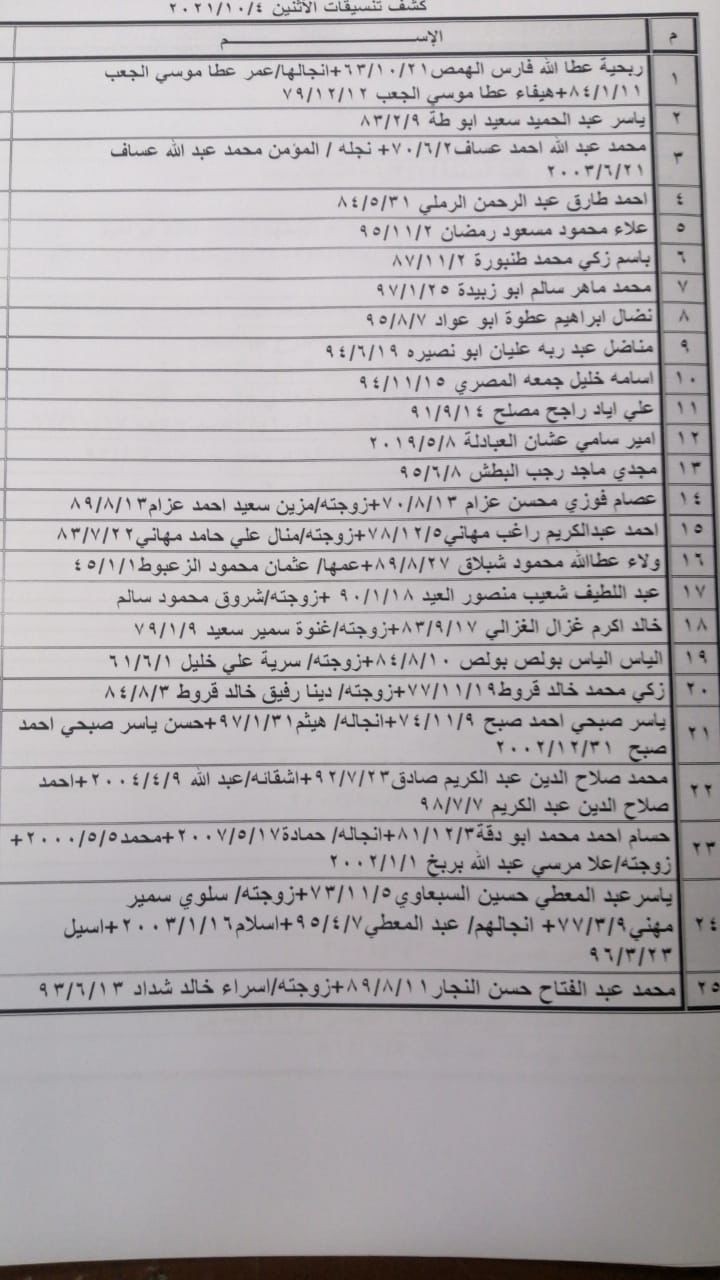 كشف تنسيقات الاثنين ٢٠٢١/١٠/٤
م الإســـــم
١ ربحية عطا الله فارس الهمص٦٣/١٠/٢١+انجالها/عمر عطا موسي الجعب
٨٤/١/١١+هيفاء عطا موسي الجعب ٧٩/١٢/١٢
٢ ياسر عبد الحميد سعيد ابو طة ٨٣/٢/٩
٣ محمد عبد الله احمد عساف٧٠/٦/٢+ نجله / المؤمن محمد عبد الله عساف
٢٠٠٣/٦/٢١
٤ احمد طارق عبد الرحمن الرملي ٨٤/٥/٣١
٥ علاء محمود مسعود رمضان ٩٥/١١/٢
٦ باسم زكي محمد طنبورة ٨٧/١١/٢
٧ محمد ماهر سالم ابو زبيدة ٩٧/١/٢٥
٨ نضال ابراهيم عطوة ابو عواد ٩٥/٨/٧
٩ مناضل عبد ربه عليان ابو نصيره ٩٤/٦/١٩
١٠ اسامه خليل جمعه المصري ٩٤/١١/١٥
١١ علي اياد راجح مصلح ٩١/٩/١٤
١٢ امير سامي عشان العبادلة ٢٠١٩/٥/٨
١٣ مجدي ماجد رجب البطش ٩٥/٦/٨
١٤ عصام فوزي محسن عزام ٧٠/٨/١٣+زوجته/مزين سعيد احمد عزام٨٩/٨/١٣
١٥ احمد عبدالكريم راغب مهاني٧٨/١٢/٥+زوجته/منال علي حامد مهاني٨٣/٧/٢٢
١٦ ولاء عطاالله محمود شبلاق ٨٩/٨/٢٧+عمها/ عثمان محمود الزعبوط٤٥/١/١
١٧ عبد اللطيف شعيب منصور العيد ٩٠/١/١٨ +زوجته/شروق محمود سالم
١٨ خالد اكرم غزال الغزالي ٨٣/٩/١٧+زوجته/غنوة سمير سعيد ٧٩/١/٩
١٩ الياس الياس بولص بولص ٨٤/٨/١٠+زوجته/ سرية علي خليل ٦١/٦/١
٢٠ زكي محمد خالد قروط٧٧/١١/١٩+زوجته/ دينا رفيق خالد قروط ٨٤/٨/٣
٢١ ياسر صبحي احمد صبح ٧٤/١١/٩+انجاله/ هيثم٩٧/١/٣١+حسن ياسر صبحي احمد
صبح ٢٠٠٢/١٢/٣١
٢٢ محمد صلاح الدين عبد الكريم صادق٩٢/٧/٢٣+اشقائه/عبد الله ٢٠٠٤/٤/٩+احمد
صلاح الدين عبد الكريم ٩٨/٧/٧
٢٣ حسام احمد محمد ابو دقة٨١/١٢/٣+انجاله/ حمادة٢٠٠٧/٥/١٧+محمد٢٠٠٠/٥/٥+
زوجته/علا مرسي عبد الله بربخ ٢٠٠٢/١/١
٢٤ ياسر عبد المعطي حسين السبعاوي٧٣/١١/٥+زوجته/ سلوي سمير
مهني٧٧/٣/٩+ انجالهم/ عبد المعطي٩٥/٤/٧+اسلام٢٠٠٣/١/١٦+اسيل
٩٦/٣/٢٣
٢٥ محمد عبد الفتاح حسن النجار٨٩/٨/١١+زوجته/اسراء خالد شداد ٩٣/٦/١٣